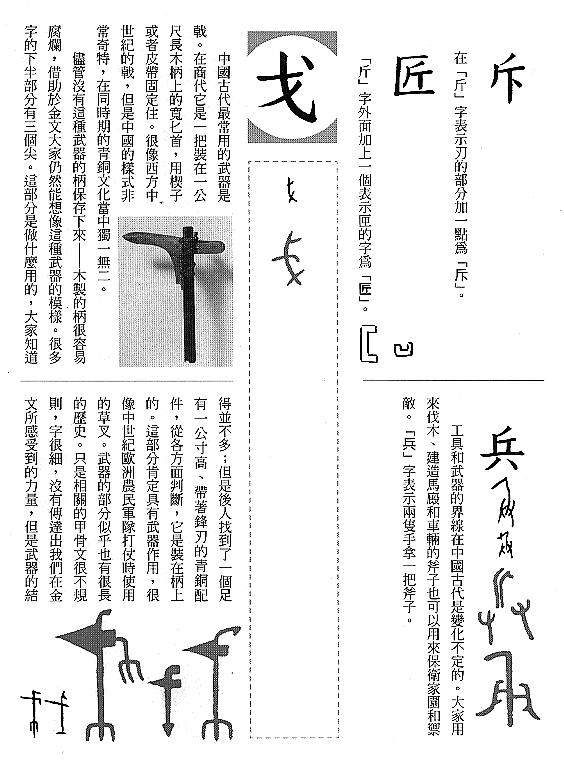 斥
在「斤」字表示刃的部分加一點爲「斥」。
匠
「斤」字外面加上一個表示匣的字爲「匠」。
兵
工具和武器的界線在中國古代是變化不定的。大家用
來伐木、建造馬廄和車輛的斧子也可以用來保衛家園和禦
敵。「兵」字表示兩隻手拿一把斧子。
戈
中國古代最常用的武器是
戟。在商代它是一把裝在一公
尺長木柄上的寬匕首，用楔子
或者皮帶固定住。很像西方中
世紀的戟，但是中國的樣式非
常奇特，在同時期的青銅文化當中獨一無二。
儘管沒有這種武器的柄保存下來——木製的柄很容易
腐爛，借助於金文大家仍然能想像這種武器的模樣。很多
字的下半部分有三個尖。這部分是做什麼用的，大家知道
得並不多；但是後人找到了一個足
有一公寸高、帶著鋒刃的青銅配
件，從各方面判斷，它是裝在柄上
的。這部分肯定具有武器作用，很
像中世紀歐洲農民軍隊打仗時使用
的草叉。武器的部分似乎也有很長
的歷史。只是相關的甲骨文很不規
則，字很細，沒有傳達出我們在金
文所感受到的力量，但是武器的結